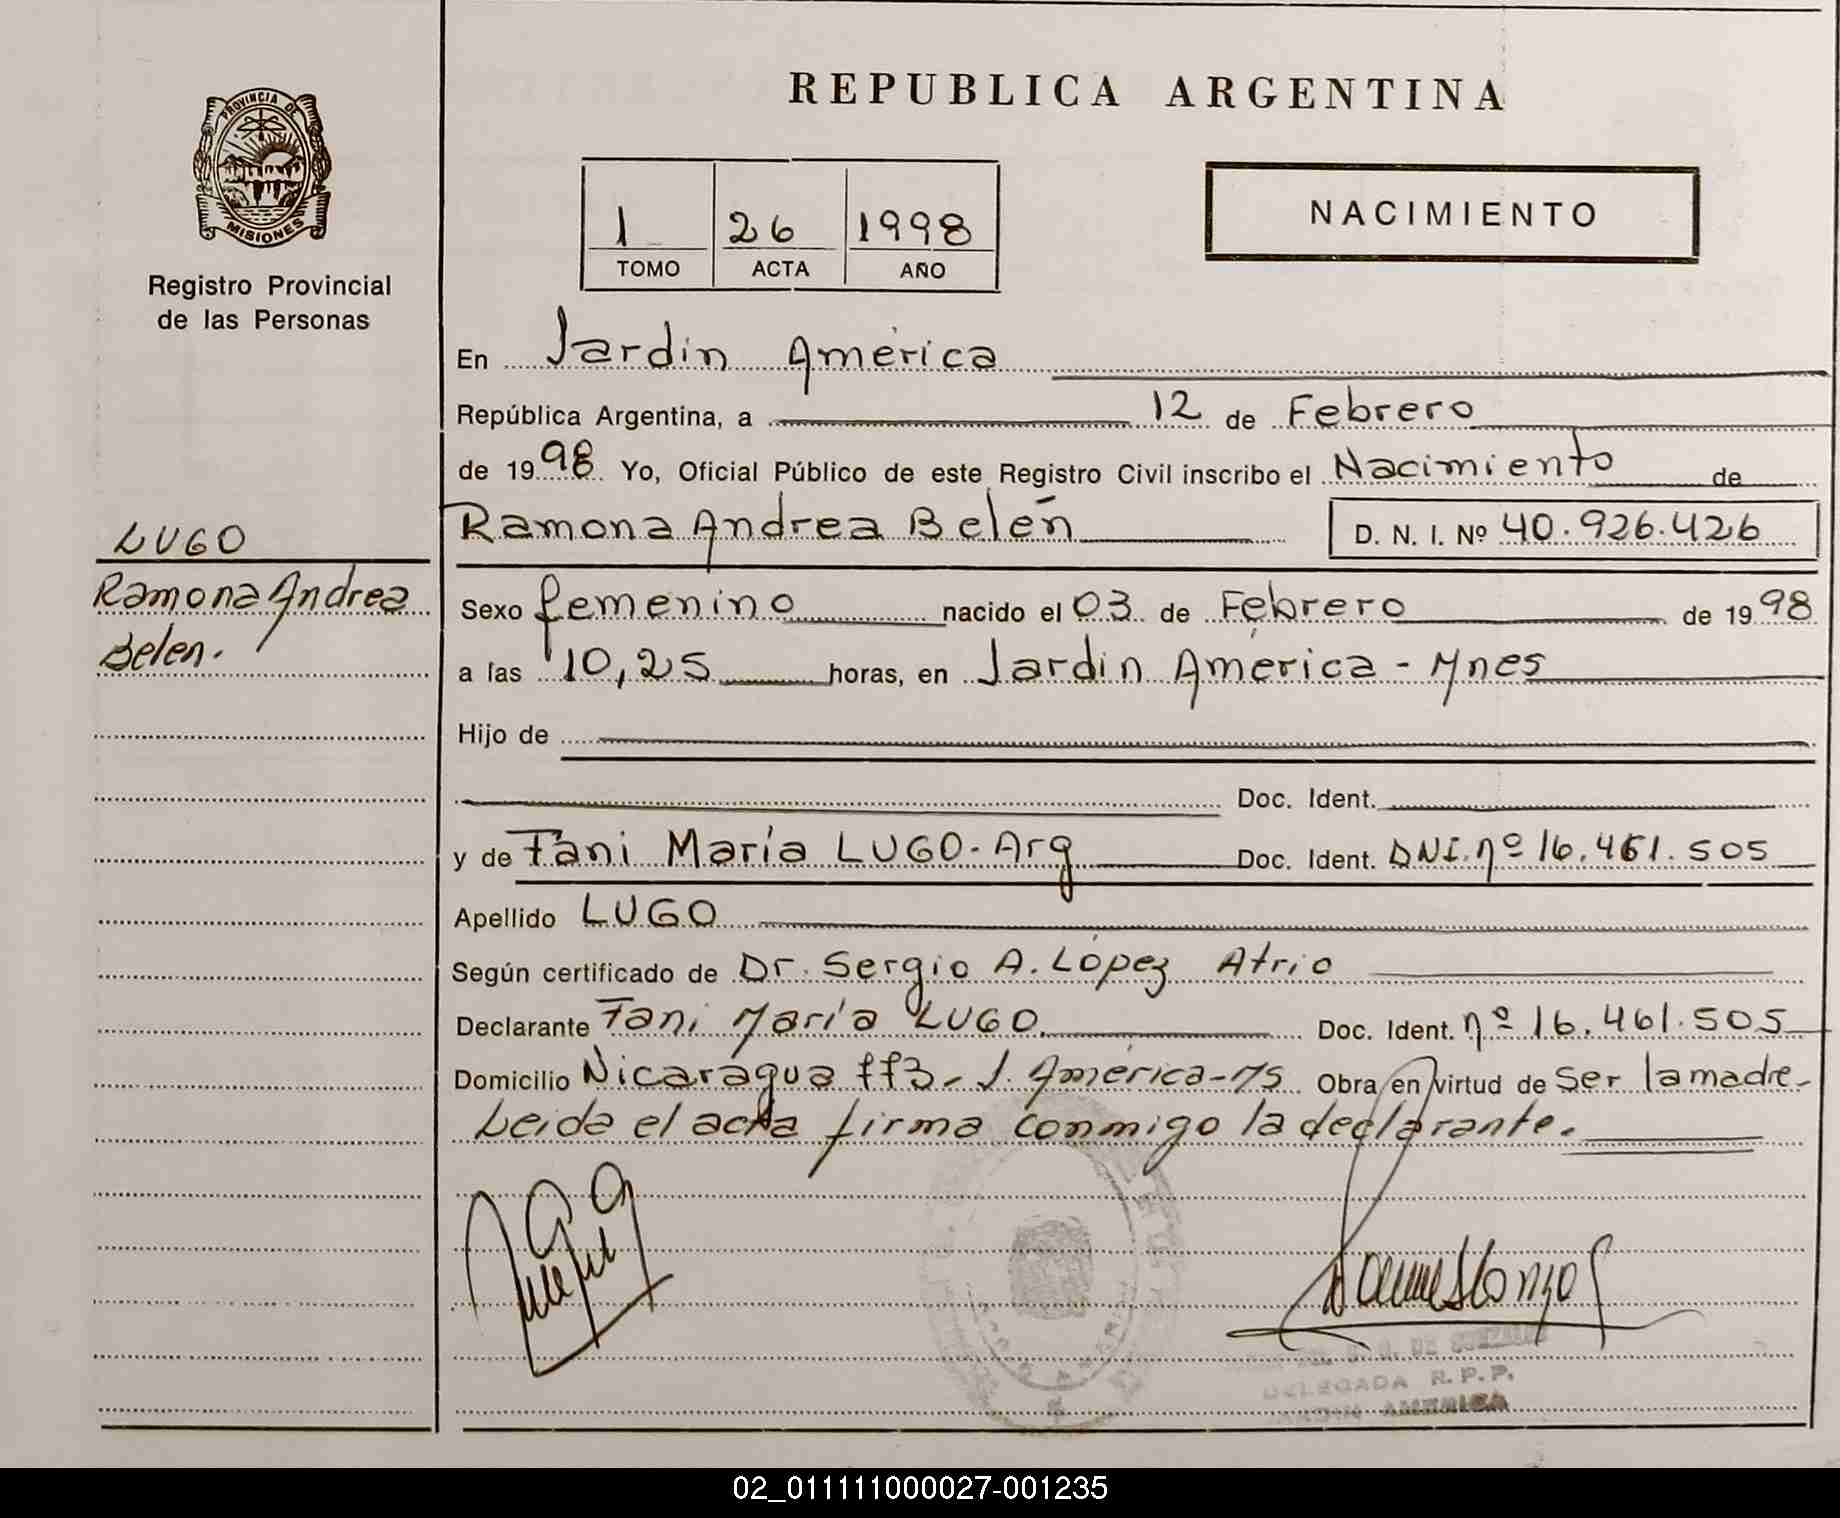 REPUBLICA ARGENTINA
PROVINCIA DE
MISIONES
Registro Provincial
de las Personas
1 26 1998
TOMO ACTA AÑO
NACIMIENTO
En Jardín América
República Argentina, a 12 de Febrero
de 1998 Yo, Oficial Público de este Registro Civil inscribo el Nacimiento de
Ramona Andrea Belén D. N. I. Nº 40.926.426
LUGO
Ramona Andrea
Belen.
Sexo femenino nacido el 03 de Febrero de 1998
a las 10,25 horas, en Jardín América - Mnes
Hijo de
Doc. Ident.
y de Fani María LUGO-Arg Doc. Ident. DNI.nº 16.461.505
Apellido LUGO
Según certificado de Dr. Sergio A. López Atrio
Declarante Fani María LUGO. Doc. Ident. nº 16.461.505
Domicilio Nicaragua ff3- J. América-Ms Obra en virtud de Ser la madre-
Leida el acta firma conmigo la declarante.
DE GONZALEZ
DELEGADA R.P.P.
JARDIN AMERICA
02_011111000027-001235